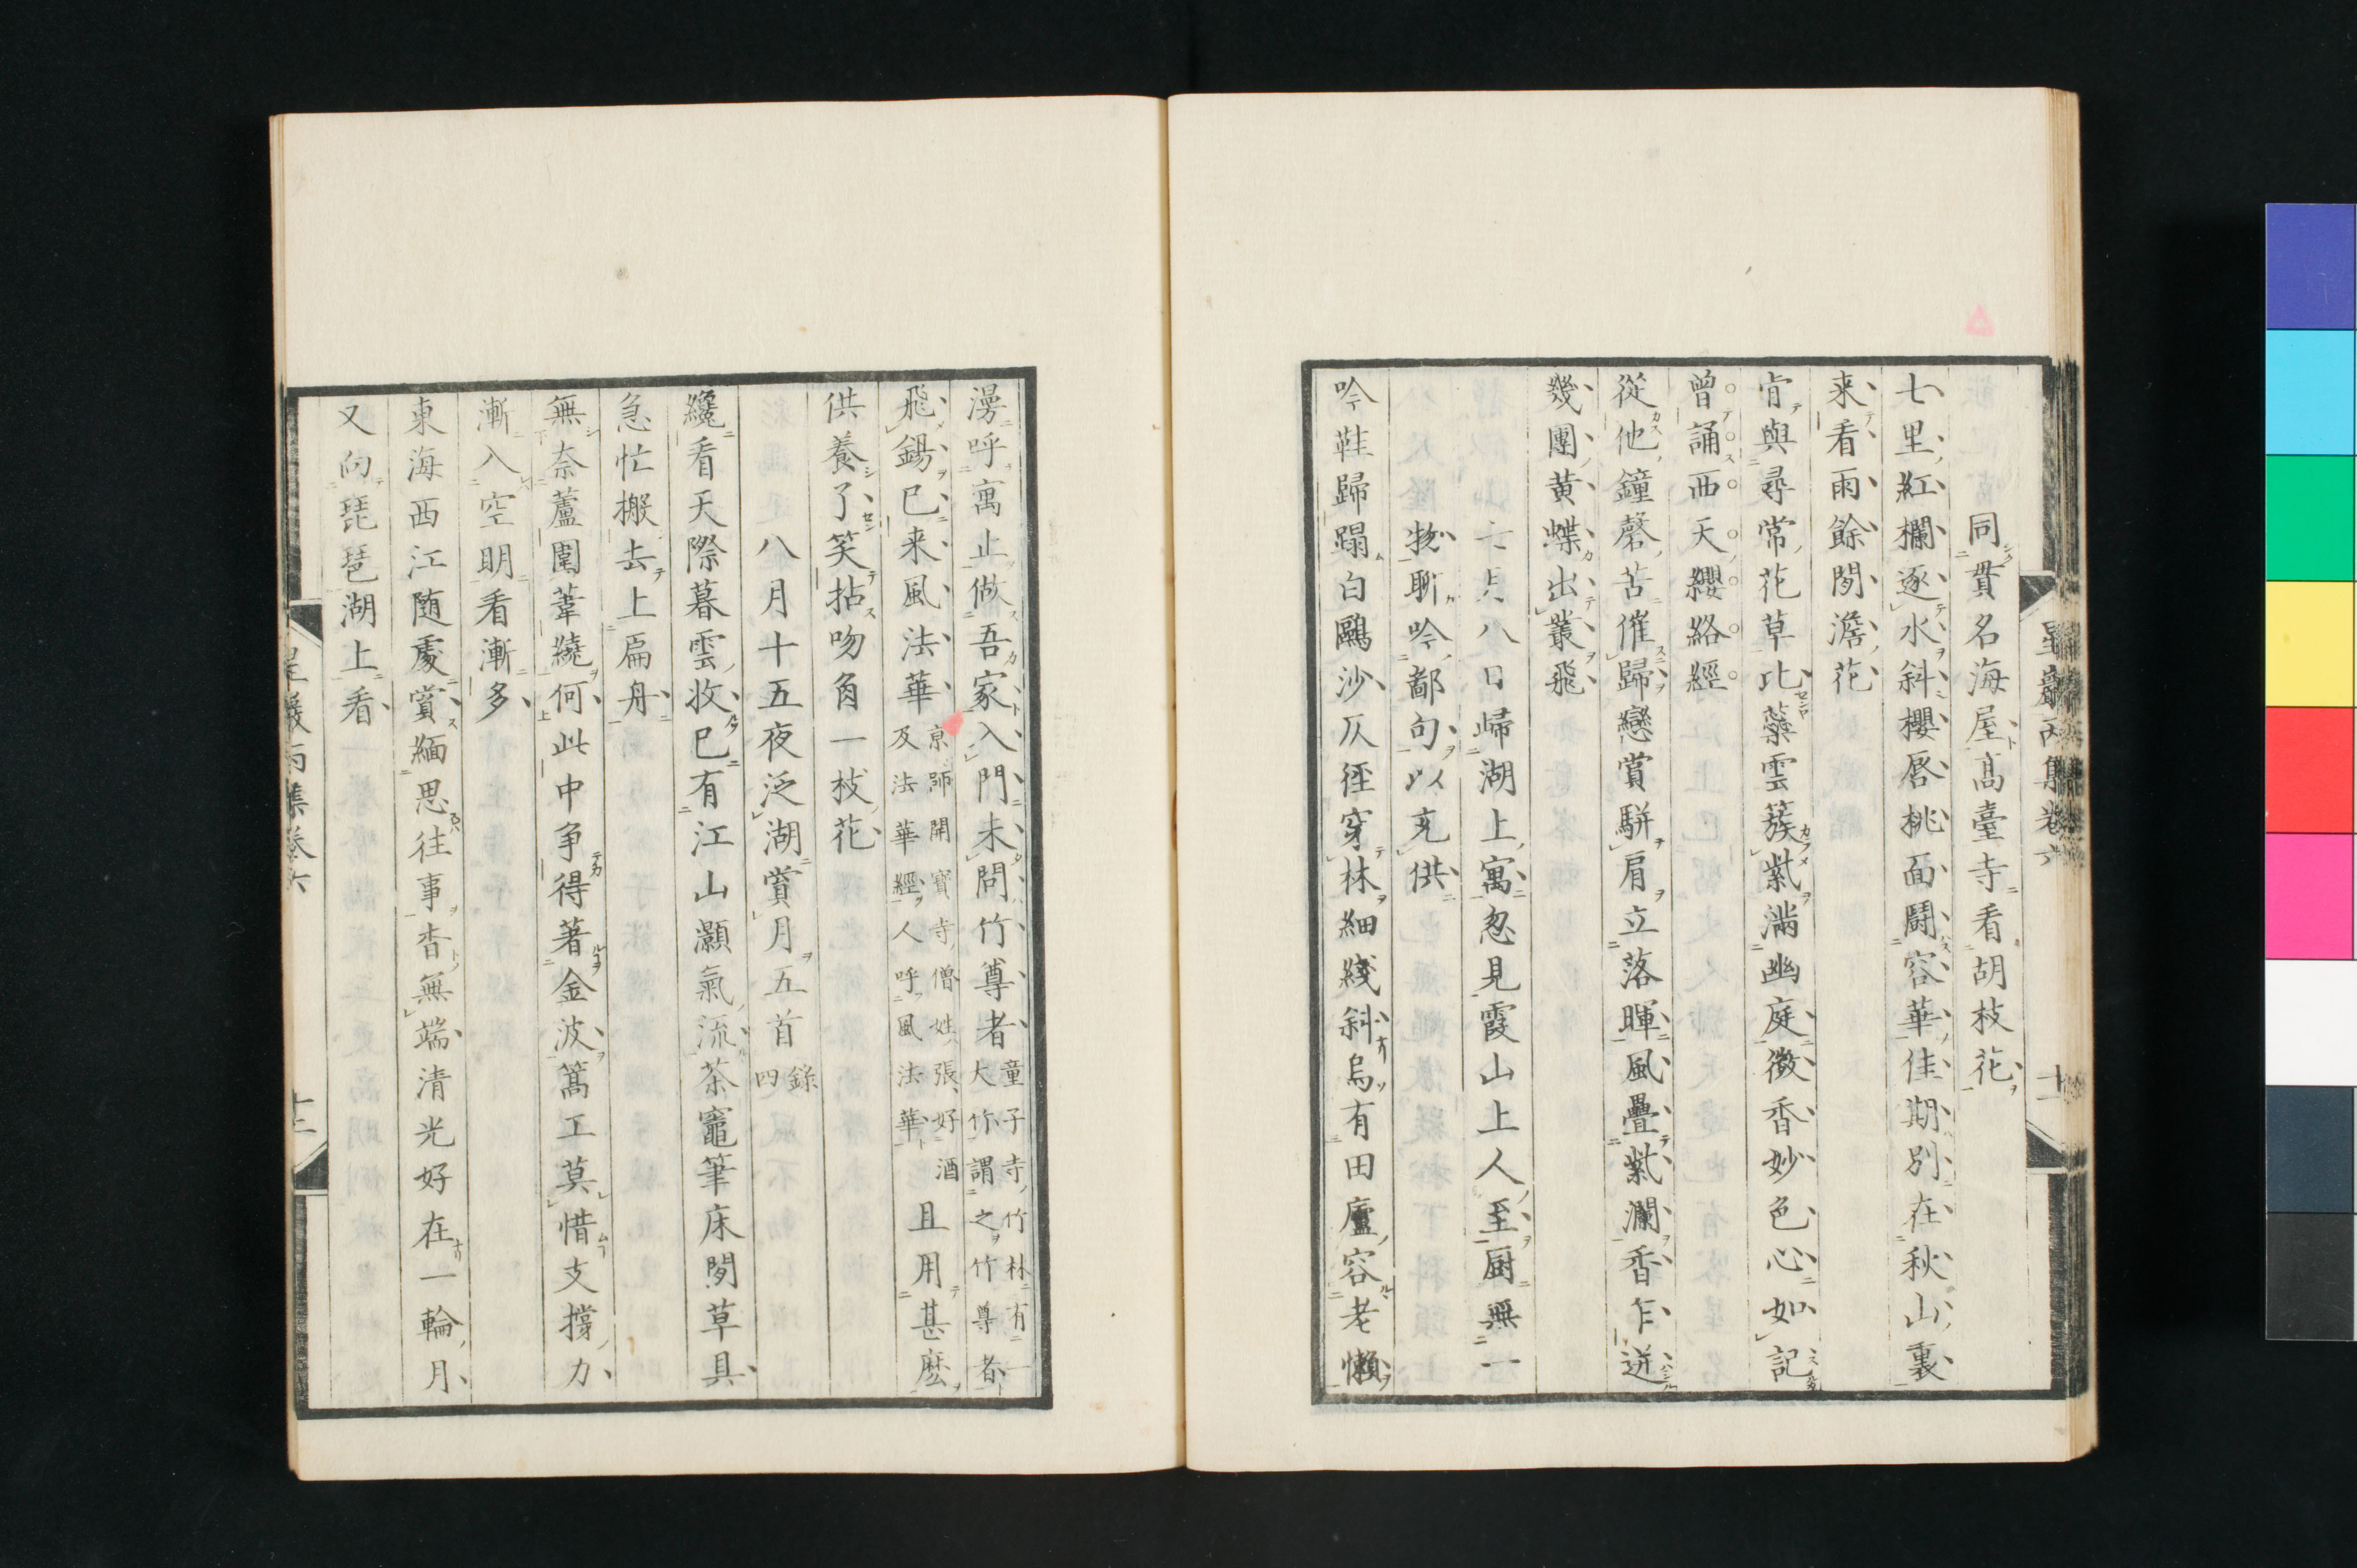 星巖丙集卷六
同貫名海屋高臺寺看胡枝花
七里紅欄逐水斜櫻唇桃面鬪容華佳期別在秋山裏
来看雨餘閒澹花
肯與尋常花草比蘂雲簇紫滿幽庭微香妙色心如記
曾誦西天纓絡經
從他鐘磬苦催歸戀賞駢肩立落暉風疊紫瀾香乍迸
幾團黄蝶出叢飛
八日歸湖上寓忽見霞山上人至厨無一
物聊吟鄙句以充供
吟鞋歸蹋白鷗沙仄徑穿林細綫斜烏有田廬容老懶
漫呼寓止做吾家入門未問竹尊者童子寺竹林有一大竹謂之竹尊者
飛錫已来風法華京師開寶寺僧姓張好酒及法華經人呼風法華且用甚麽
供養了笑拈吻角一枝花
八月十五夜泛湖賞月五首錄四
纔看天際暮雲收已有江山灝氣流茶竈筆床閒草具
急忙搬去上扁舟
無奈蘆圍葦繞何此中争得著金波篙工莫惜支撐力
漸入空明看漸多
東海西江随處賞緬思往事杳無端清光好在一輪月
又向琵琶湖上看
星巖丙集卷六